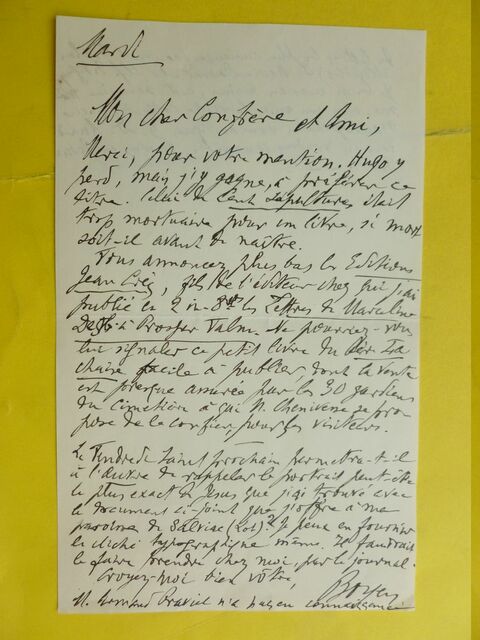 Mardi
Mon cher Confrère et Ami,
Merci, pour votre mention. Hugo y
perd, mais j'y gagne, à préférer ce
titre. Celui de Cent Sépultures était
trop mortuaire pour un livre, si mort
soit-il avant de naître.
Vous annoncez plus bas les Editions
Jean Crès, fils de l'éditeur chez qui j'ai
publié en 2 in-8º les Lettres de Marceline
à Prosper Valmore. Ne pourriez-vous
lui signaler ce petit livre du
chaise facile à publier, dont la vente
est presque assurée par les 30 gardiens
du cimetière à qui M. se pro
pose de le confier, pour les visiteurs.
Le Vendredi Saint prochain permettra-t-il
à l'Œuvre de rappeler le portrait peut-être
le plus exact de Jésus que j'ai trouvé avec
le document ci-joint que j'offre à ma
paroisse de Salviac (Lot)? Je peux en fournir
le cliché typographique même. Il faudrait
le faire prendre chez moi, par le journal.
Croyez-moi bien vôtre,
Boyer
M. Armand Praviel n'a pas eu connaissance